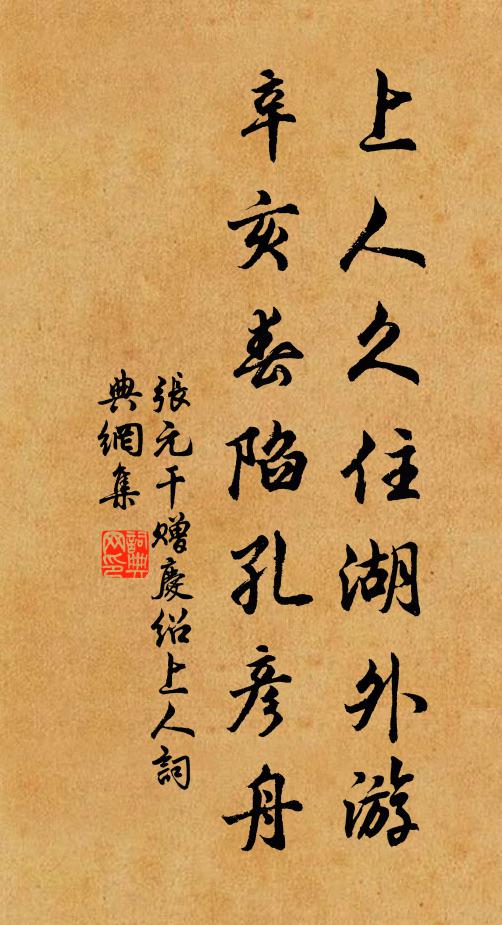 上人久住湖外游
辛亥春陷孔彥舟
張元干贈慶紹上人詞
典網集
詞典网印